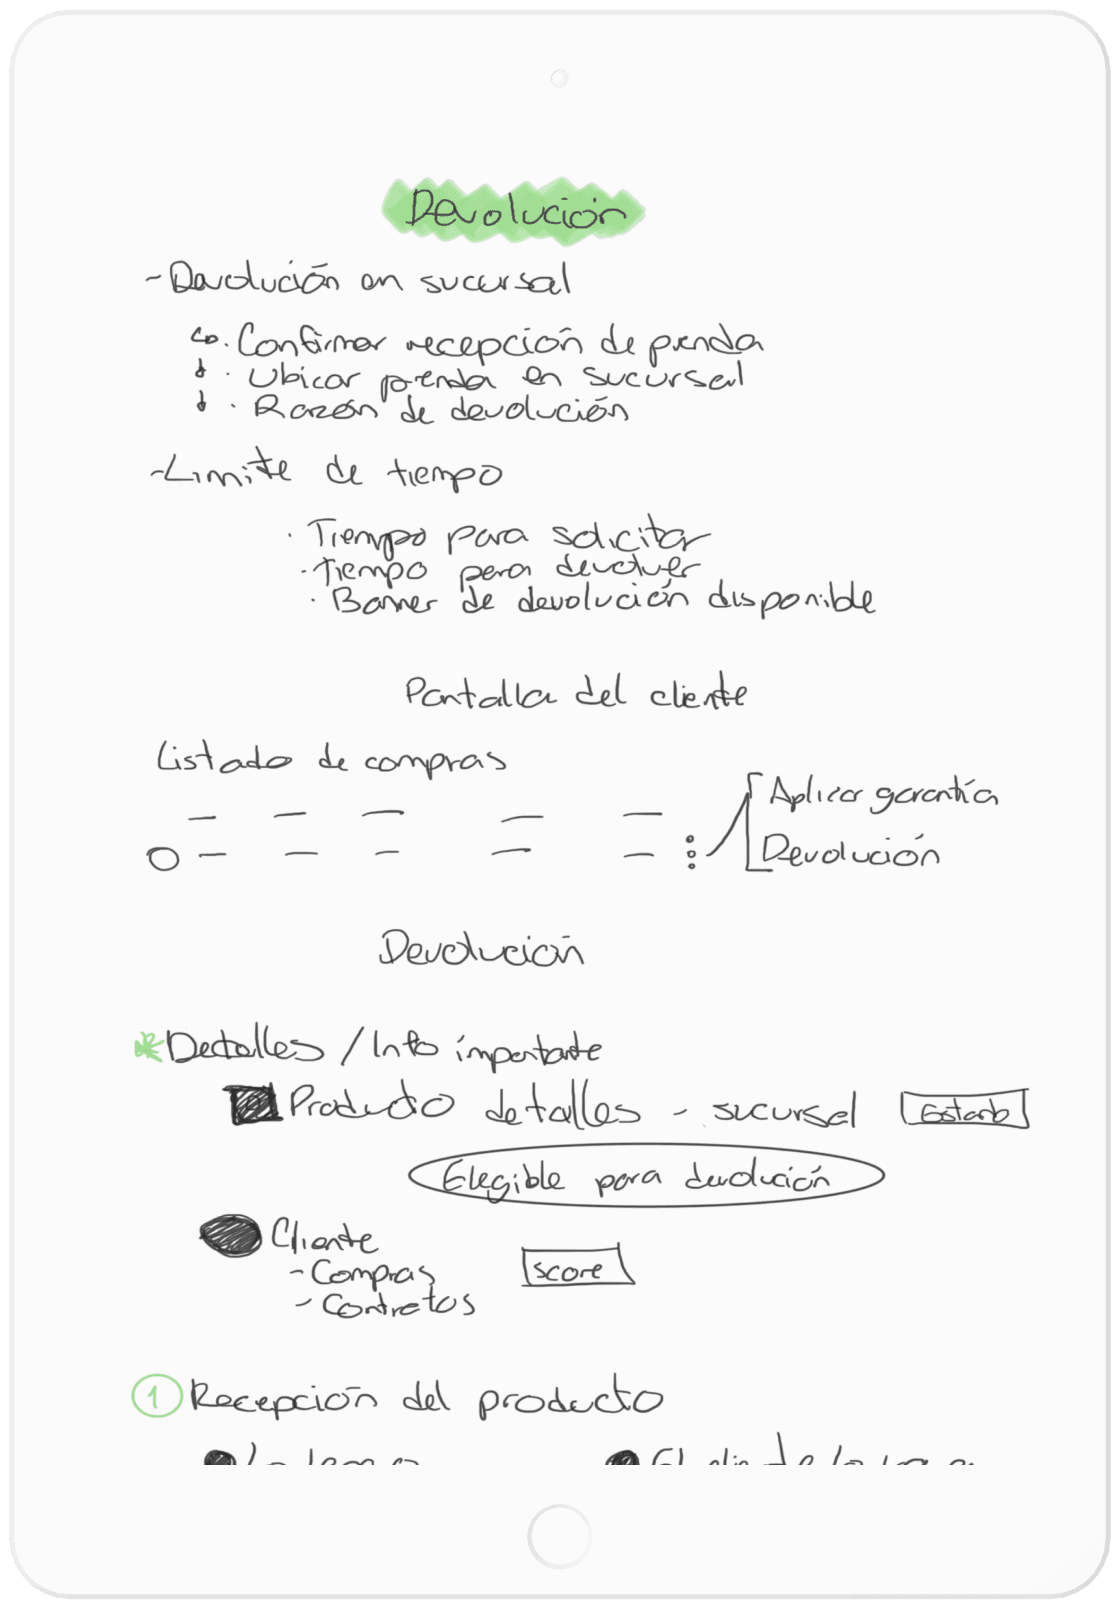 Devolución
- Devolución en sucursal
· Confirmar recepción de prenda
· Ubicar prenda en sucursal
· Razón de devolución
- Limite de tiempo
· Tiempo para solicitar
· Tiempo para devolver
· Banner de devolución disponible
Pantalla del cliente
Listado de compras
Aplicar garantía
Devolución
Devolución
* Detalles / Info importante
Producto detalles - sucursal Estado
Elegible para devolución
Cliente
- Compras
score
- Contratos
1 Recepción del producto